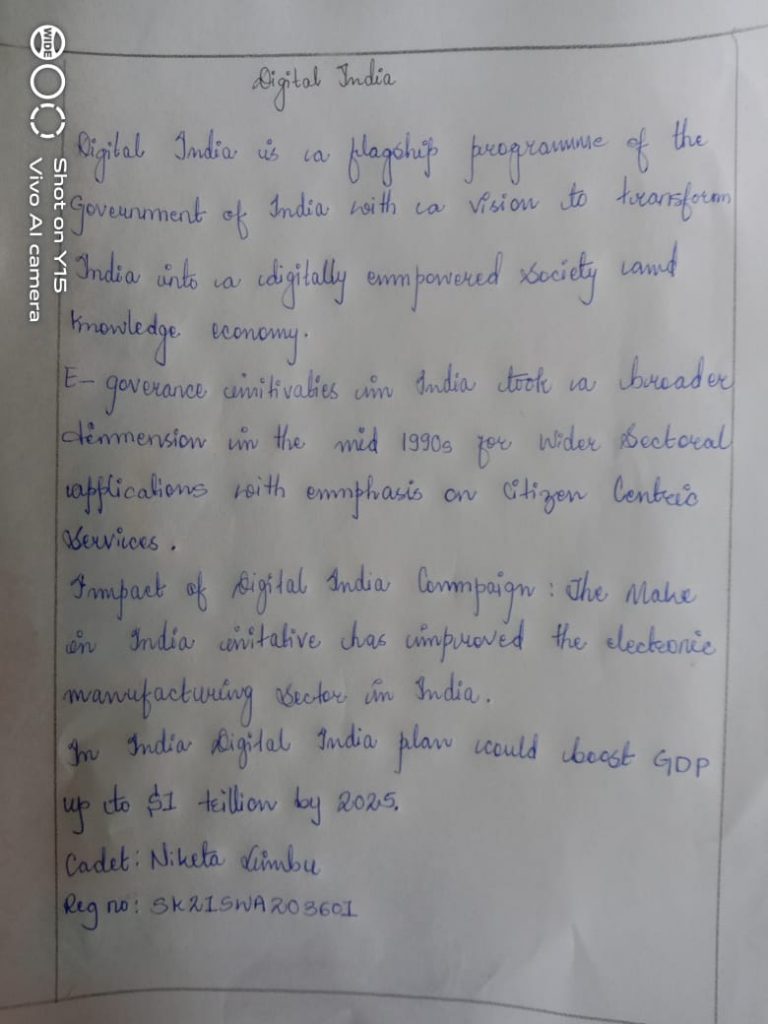 Digital India
Digital India is a flagship programme of the
Government of India with a vision to transform
India into a digitally emmpowered society and
knowledge economy.
E- goverance initivabies in India took a broader
dimmension in the mid 1990s for wider Sectoral
applications with emmphasis on Citizen Centric
Services.
Impact of Digital India Commpaign : The Make
in India initative has improved the electronic
manufacturing sector in India.
In India Digital India plan could boost GDP
up to $1 trillion by 2025.
Cadet: Niketa Limbu
Reg no: SK21SWA203601
WIDE
Shot on Y15
Vivo AI camera